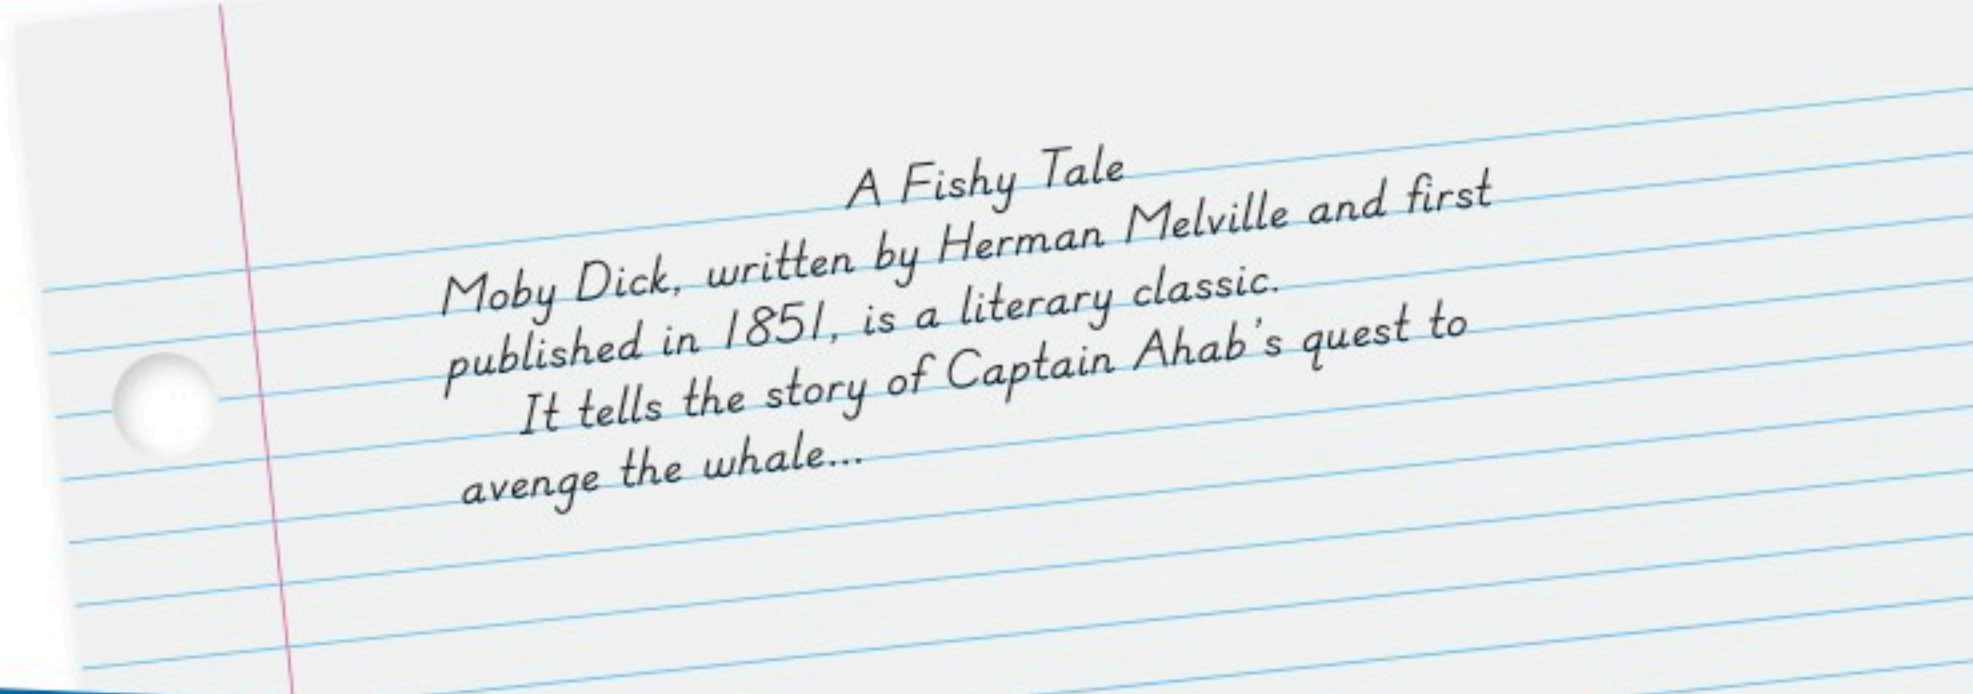 A Fishy Tale
Moby Dick, written by Herman Melville and first
published in 1851, is a literary classic.
It tells the story of Captain Ahab's quest to
avenge the whale...